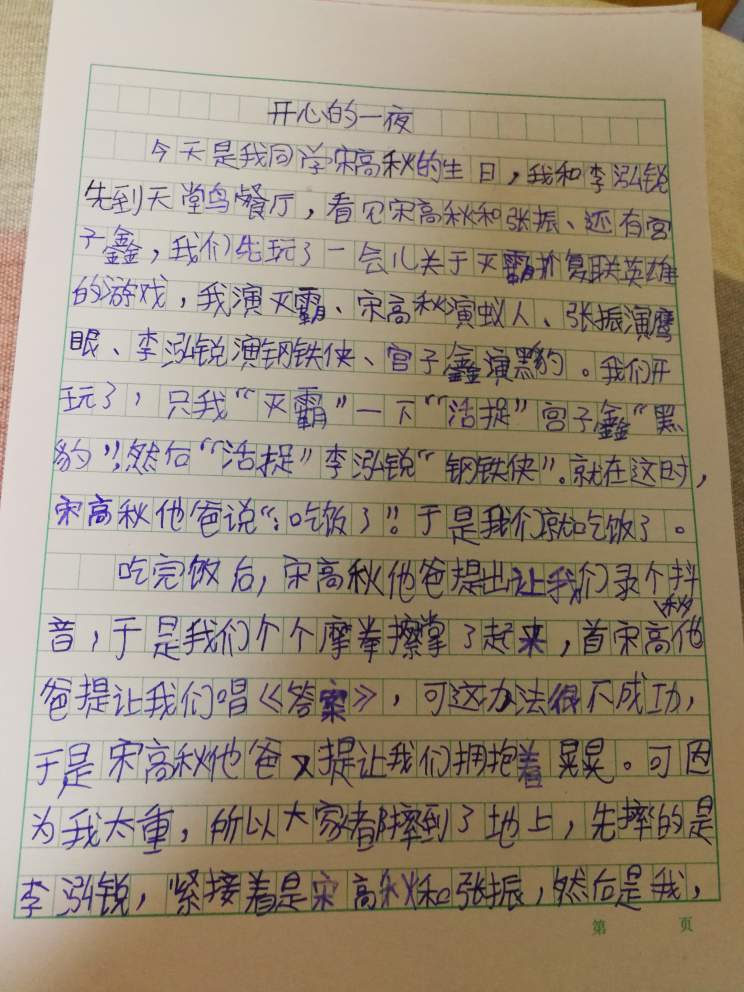 开心的一夜
今天是我同学宋高秋的生日，我和李泓锐
先到天堂鸟餐厅，看见宋高秋和张振、还有宫
子鑫，我们先玩了一会儿关于灭霸和复联英雄
的游戏，我演灭霸、宋高秋演蚁人、张振演鹰
眼、李泓锐演钢铁侠、宫子鑫演黑豹。我们开
玩了，只我“灭霸”一下“活捉”宫子鑫“黑
豹”，然后“活捉”李泓锐“钢铁侠”。就在这时，
宋高秋他爸说“：吃饭了”！于是我们就吃饭了。
吃完饭后，宋高秋他爸提出让我们录个抖
音，于是我们个个摩拳擦掌了起来，首宋高秋他
爸提让我们唱《答案》，可这办法很不成功，
于是宋高秋他爸又提让我们拥抱着晃晃。可因
为我太重，所以大家都摔到了地上，先摔的是
李泓锐，紧接着是宋高秋和张振，然后是我，
第 页